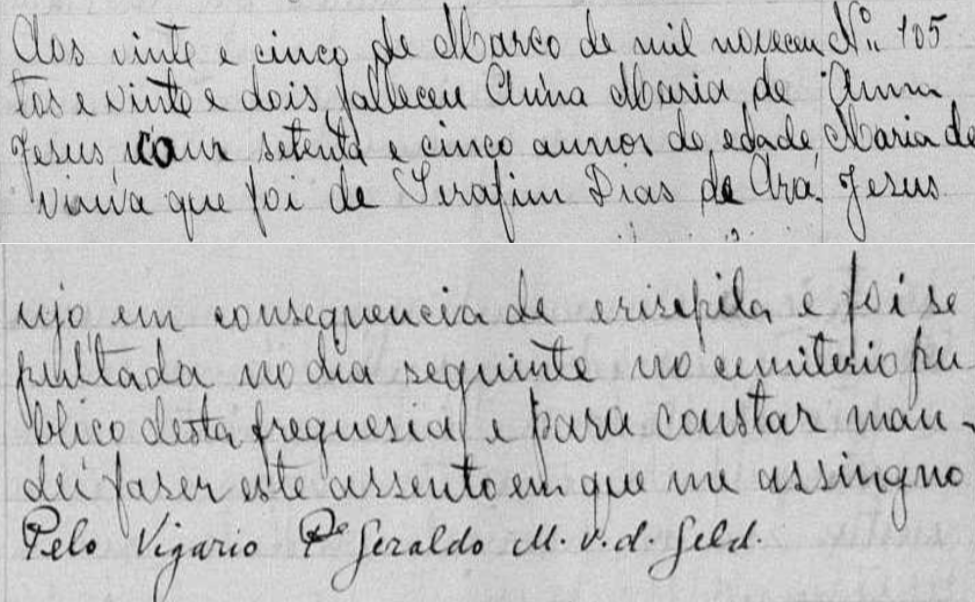 Aos vinte e cinco de Março de mil novecen
tos e vinte e dois falleceu Anna Maria de
Jesus com setenta e cinco annos de edade,
viuva que foi de Serafim Dias de Ara
Nº 105
Anna
Maria de
Jesus
ujo em consequencia de erisepila e foi se
pultada no dia seguinte no cemiterio pu
blico desta freguesia e para constar man-
dei faser este assento em que me assingno
Pelo Vigario Pe Geraldo M. v. d. Geld.